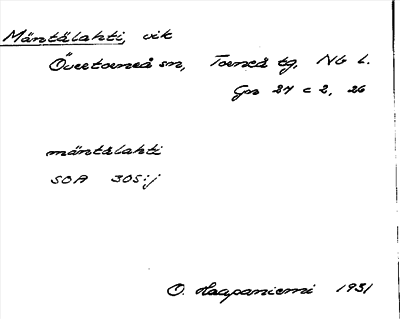 Mäntälahti, vik
Övertorneå sn, Torneå tg, Nb l.
Gn 27 c 2, 26
mäntälahti
SOA 305:j
O. Haapaniemi 1931